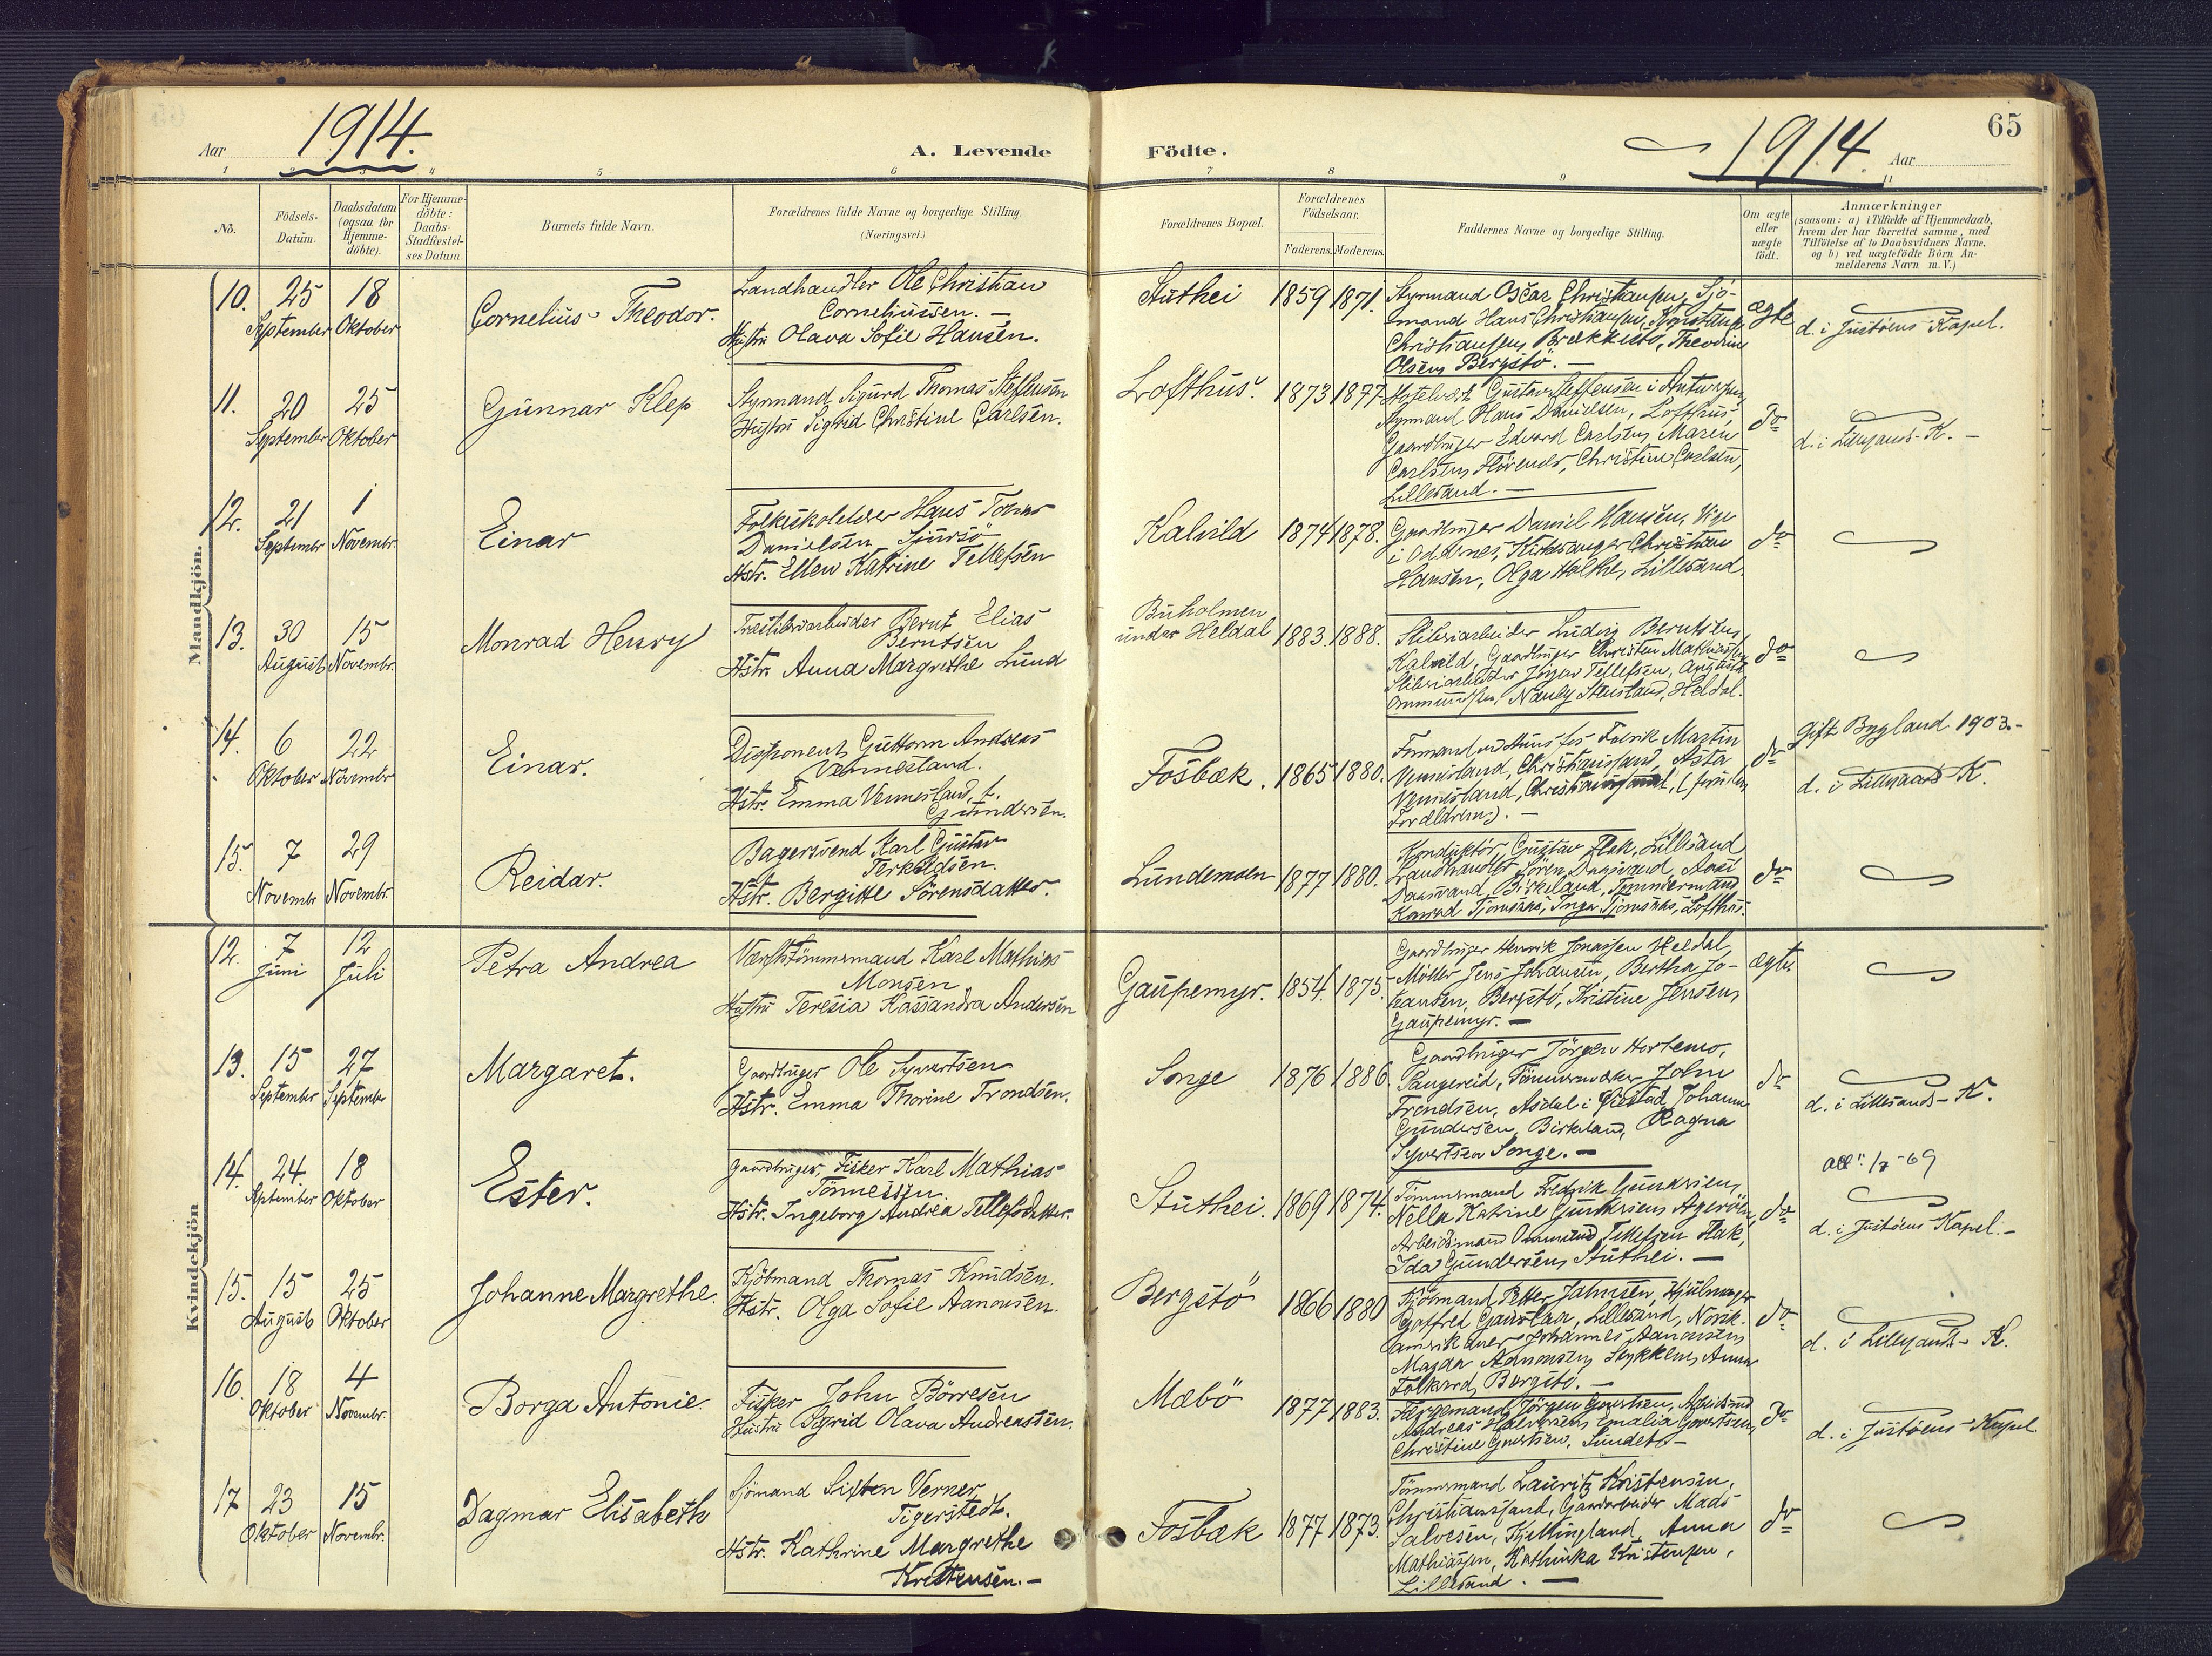 65
1914.
Aar
A. Levende Födte.
1914.
Aar
1 2 3 4 5 6 7 8 9 11
No.
Födsels-Datum.
Daabsdatum (ogsaa for Hjemme-döbte).
For Hjemme-döbte: Daabs-Stadfæstel-ses Datum.
Barnets fulde Navn.
Forældrenes fulde Navne og borgerlige Stilling. (Næringsvei.)
Forældrenes Bopæl.
Forældrenes Födselsaar.
Faderens. Moderens.
Faddernes Navne og borgerlige Stilling.
Om ægte eller uægte födt.
Anmærkninger
(saasom: a) i Tilfælde af Hjemmedaab,
hvem der har forrettet samme, med
Tilföielse af to Daabsvidners Navne,
og b) ved uægtefödte Börn An-
melderens Navn m. V.)
Mandkjön.
10. 25 September 18 Oktober
Cornelius Theodor.
Landhandler Ole Christian
Corneliussen. —
Hustru Olava Sofie Hansen.
Stuthei 1859 1871.
Styrmand Oscar Christiansen, Sjö-
mand Hans Christiansen, Konstanse
Christiansen, Brækkestö, Theodine
Olsen, Bergstö. —
ægte
d. i Justöens Kapel.
11. 20 September 25 Oktober
Gunnar Klep
Styrmand Sigurd Thomas Steffensen
Hustru Sigrid Christine Carlsen.
Lofthus. 1873 1877
Hotelvært Gustav Steffensen i Antwerpen,
Styrmand Hans Danielsen, Lofthus
Gaardbruger Edvard Carlsen, Maren
Carlsen, Christine Carlsen,
Lillesand. —
do
d. i Lillesands K. —
12. 21 September 1 Novembr.
Einar
Folkeskolelærer Hans Tobias
Danielsen
Hstr. Ellen Katrine Tellefsen
Kalvild 1874 1878.
Gaardbruger Daniel Hansen, Vige
i Oddernes, Kirkesanger Christian
Hansen, Olga Holthe, Lillesand.
do
13. 30 August 15 Novembr.
Monrad Henry
Træsliberiarbeider Bernt Elias
Berntsen
Hstr. Anna Margrethe Lund
Buholmen
under Heldal 1883. 1888.
Sliberiarbeider Ludvig Berntsen,
Kalvild, Gaardbruger Christen Mathiassen
Sliberiarbeider Jörgen Tellefsen, August
Ommundsen, Nancy Stensland, Heldal.
do
14. 6 Oktober 22 Novembr
Einar.
Disponent, Guttorm Andreas
Vennesland.
Hstr. Emma Vennesland, f.
Gundersen.
Fosbæk. 1865 1880.
Fredrik Martin
Vennesland, Christianssand, Asta
Vennesland, Christianssand,
Forældrene). —
do
Gift Bygland 1903.-
d. i Lillesands K.
15. 7 Novembr 29 Novembr.
Reidar.
Bagersvend Karl Gustav
Terkeldsen.
Hstr. Bergitte Sörensdatter.
Lundemoen 1877 1880.
Konduktör, Gustav Flak, Lillesand
Landhandler Sören Dugsvand, Aasi
Birkeland, Tömmermand
Konrad Tjomsaas, Inga Tjomsaas, Lofthus.
do
Kvindekjön
12. 7 Juni 12 Juli
Petra Andrea
Værftstömmermand Karl Mathias
Monsen
Hustru Teresia Kassandra Andersen
Gaupemyr. 1854. 1875.
Gaardbruger Henrik Jonassen Heldal,
Möller Jens Johansen, Bertha Jo-
hansen, Bergstö, Kristine Jensen,
Gaupemyr. —
ægte.
13. 15 September 27 September
Margaret.
Gaardbruger Ole Syvertsen
Hstr. Emma Thorine Trondsen.
Songe 1876 1886
Gaardbruger Jörgen Hortemo,
Vangereid, Tömmermand John
Trondsen, Asdal i Öiestad, Johanne
Gundersen, Birkeland, Ragna
Syvertsen Songe. —
do
d. i Lillesands K.
14. 24. September 18 Oktober
Ester.
Gaardbruger, Fisker Karl Mathias
Tönnessen.
Hstr. Ingeborg Andrea Tellefsdatter.
Stuthei. 1869 1874.
Tömmermand Fredrik Gundersen,
Nella Katrine Gundersen, Ageröen,
Arbeidsmand Ommund Tellefsen Flak,
Ida Gundersen, Stuthei. —
do
att. 1/7-69
d. i Justöens Kapel.-
15. 15 August 25 Oktober
Johanne Margrethe.
Kjöbmand Thomas Knudsen.
Hstr. Olga Sofie Aanonsen.
Bergstö 1866 1880
Kjöbmand Petter Jahnsen, Hjulmager
Gotfred Gauslaa, Lillesand, Norsk-
amerikaner Johannes Aanonsen,
Magda Aanonsen, Stykkene, Anna
Folkvord, Bergstö. —
do
d. i Lillesands K.
16. 18 Oktober 4 Novembr.
Borga Antonie.
Fisker John Börresen
Hustru Sigrid Olava Andreassen.
Mæbö 1877 1883.
Færgemand Jörgen Govertsen, Arbeidsmd
Andreas Halvorsen, Emalia Govertsen,
Christine Govertsen, Sundet. —
do
d. i Justöens Kapel
17 23 Oktober 15 Novembr.
Dagmar Elisabeth
Sjömand Sixten Verner
Tigerstedt.
Hstr. Kathrine Margrethe
Kristensen.—
Fosbæk 1877 1873.
Tömmermand Lauritz Kristensen,
Christianssand, Gaardarbeider Mads
Salvesen, Kjellingland, Anna
Mathiassen, Kathinka Kristensen,
Lillesand. —
do